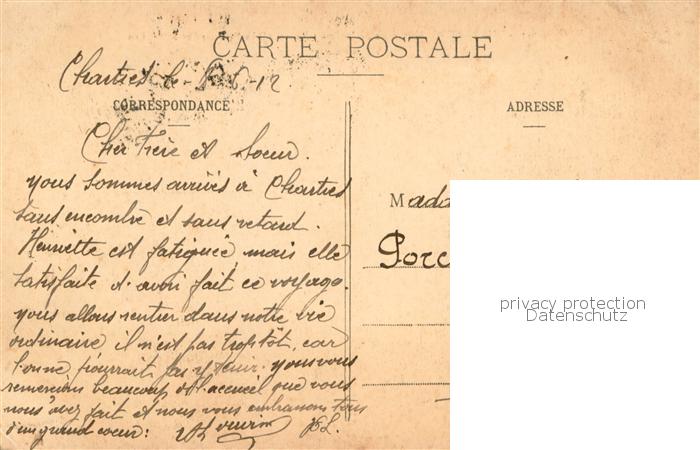 CARTE POSTALE
Chartres le 12
CORRESPONDANCE
ADRESSE
Cher Frère et Soeur.
nous sommes arrivés à Chartres
sans encombre et sans retard.
Henriette est fatiguée mais elle
satisfaite d'avoir fait ce voyage.
nous allons rentrer dans notre vie
ordinaire il n'est pas trop tôt, car
l'on ne pourrait pas y tenir. nous vous
remercions beaucoup de l'accueil que vous
nous avez fait et nous vous embrassons tous
d'un grand coeur:
Mada
Porc
privacy protection
Datenschutz